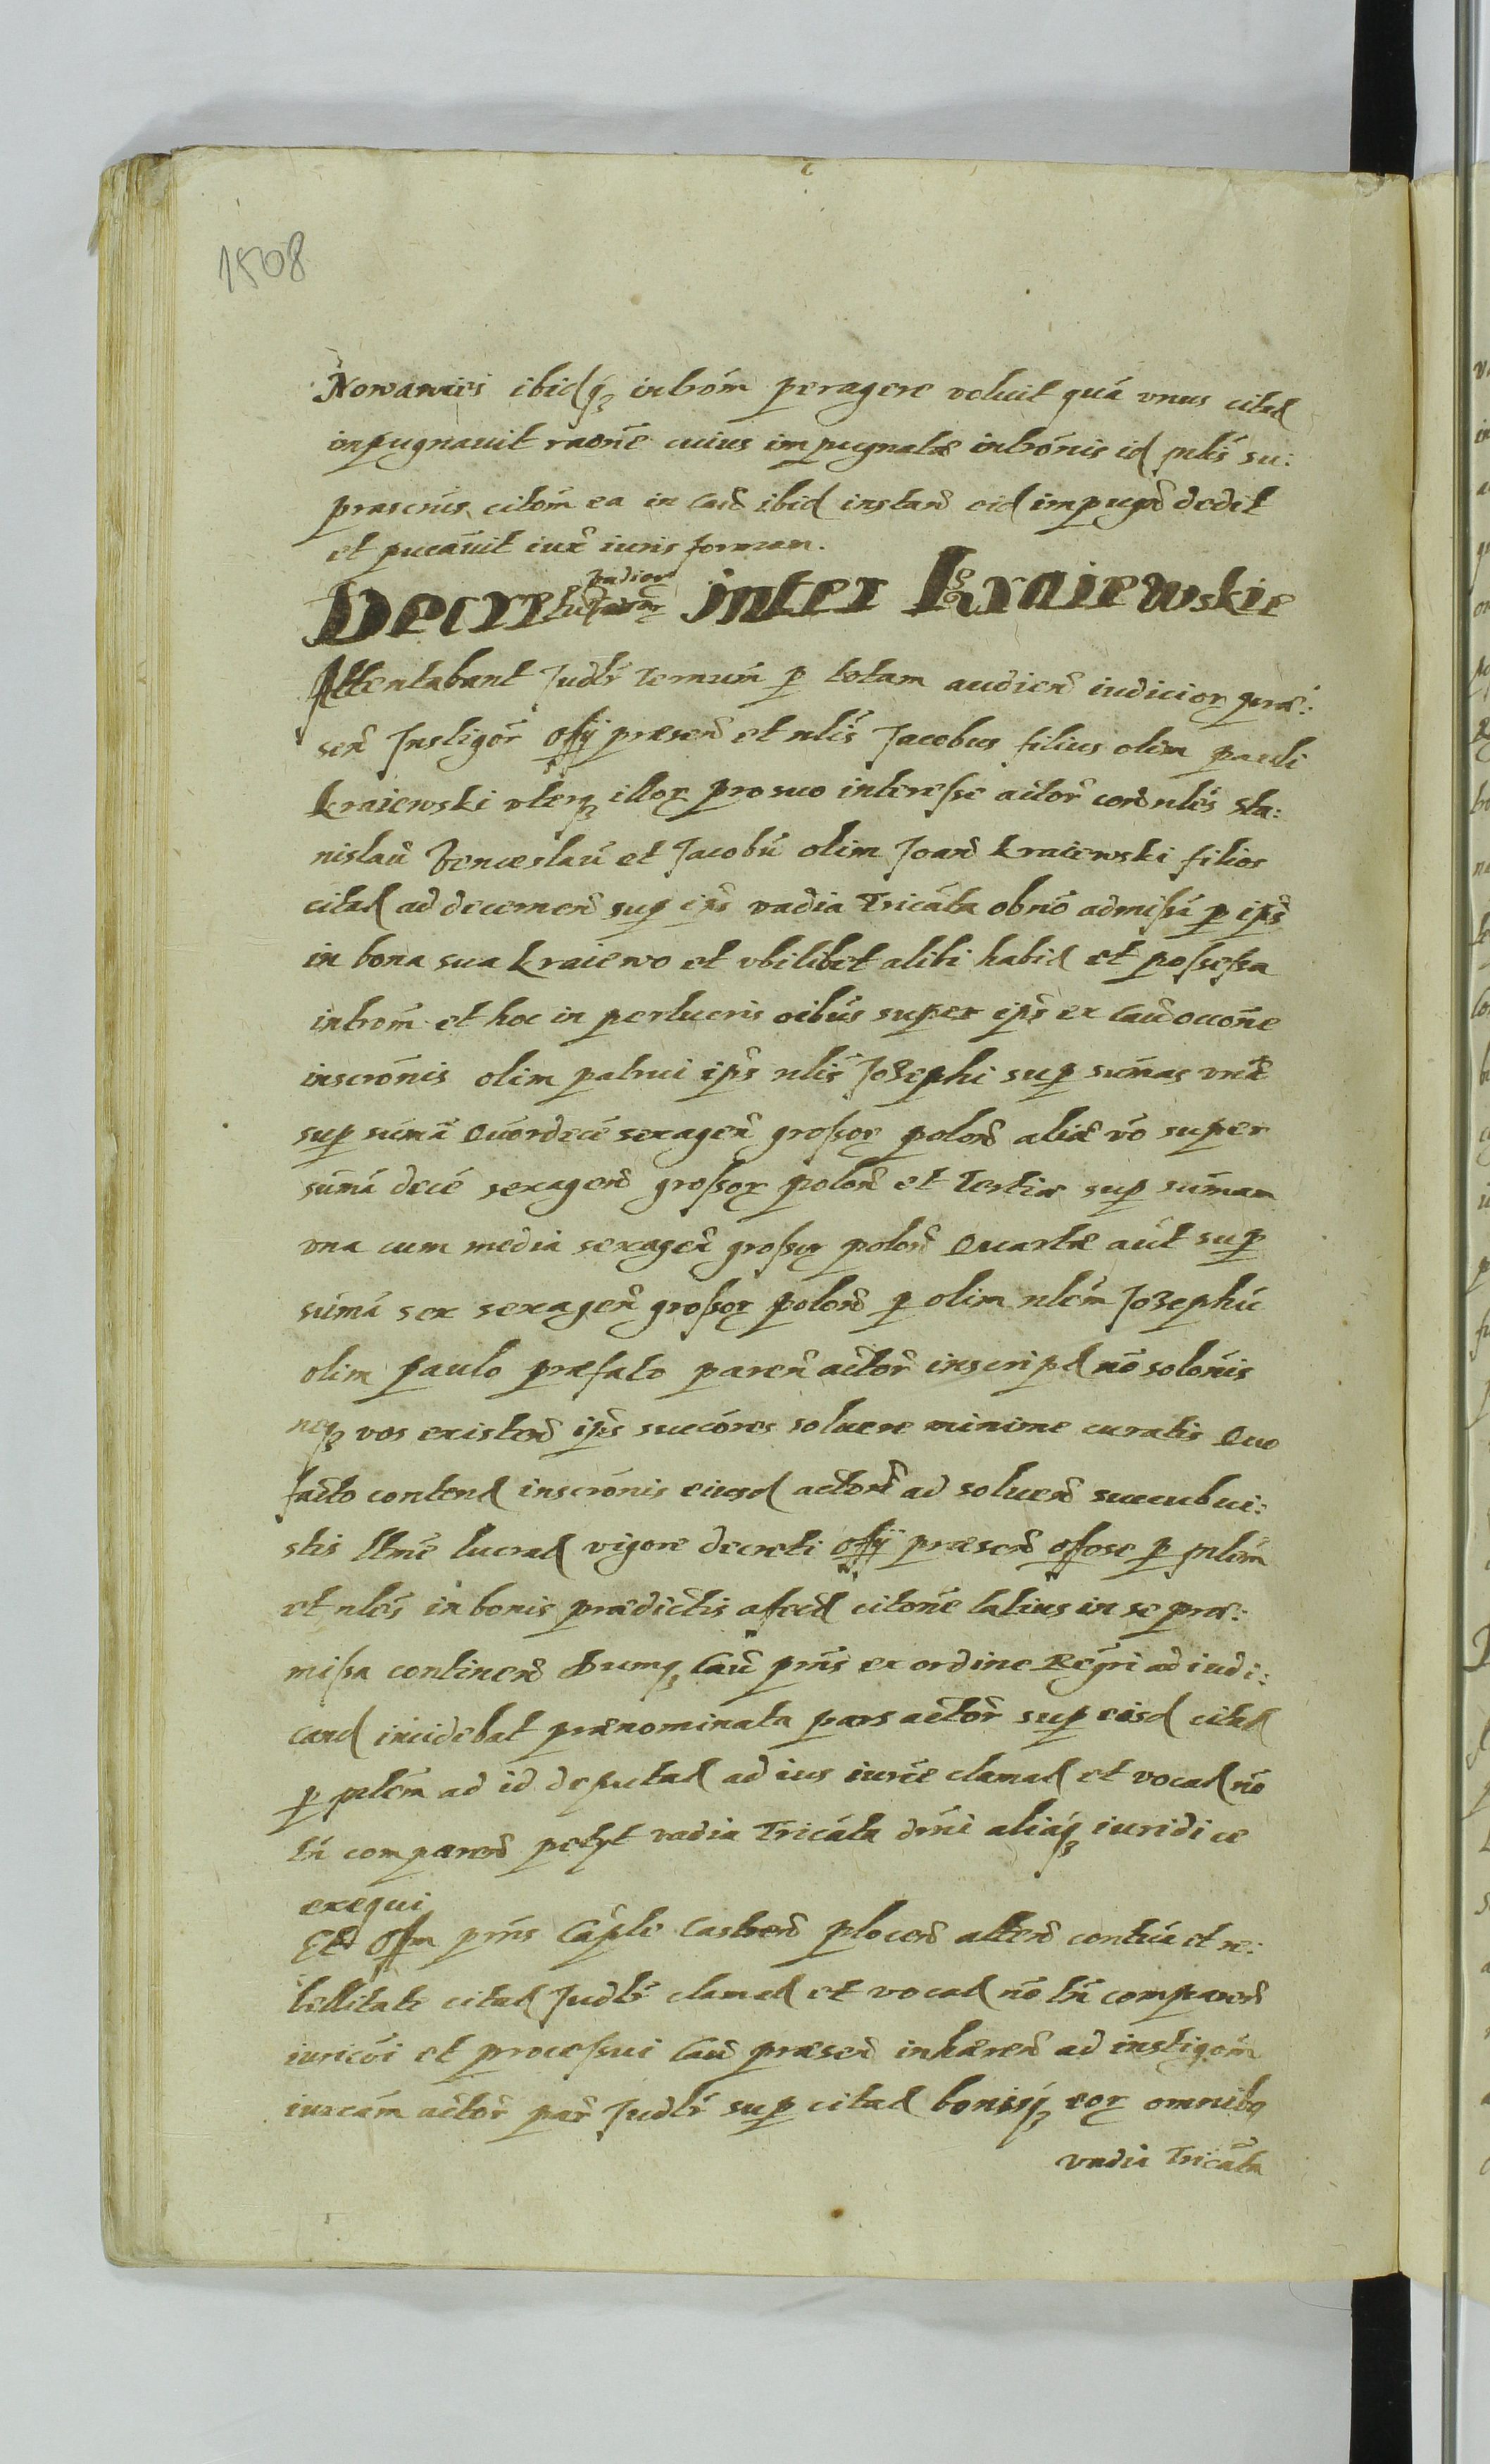 1508
Nowawies ibidq₃ intróm peragere voluit quá vnus citad
inpugnauit raōne cuius impugnatæ intrónis id plís su:
prascrius citóm ea in Cau ibid instan eid impugn dedit
et pucāuit iux iuris formam.
Decr vadior inter Kraiewskie
Attentabant Judlr Termím p totam audien iudicior præ:
sen Instigor Offÿ præsen et nlis Jacobus filius olim pauli
kraiewski vterq₃ illor pro suo interesse actor con nles sta:
nislaū Venceslaū et Jacobū olim Joan kraiewski filios
citad ad decernen sup ips vadia Tricáta obnō admissā p ips
in bona sua kraiewo et vbilibet alibi habid et possessa
intrōm et hoc in perlucris oibus super ips ex Cau occōne
inscrōnis olim patrui ips nlis Josephi sup sūmas vnā
sup sūmā Quordecē sexagen grossor polon aliā vō super
sūmā decē sexagen grossor polon et tertiæ sup sūmam
vna cum media sexagen grossor polon Quartæ aūt sup
sūmā sex sexagen grossor polon p olim nlēm Josephū
olim paulo præfato paren actor inscripd nō solōnis
neq₃ vos existen ips succōres soluere minime curatis Quo
facto contend inscrōnis eiusd actorē ad soluen succubui:
stis ltmē lucrad vigore decreti offÿ præsen offose p mlēm
et nles in bonis prædictis affecd citōne latius in se præ:
missa continen Dumq₃ Cau pñs ex ordine Regri ad iudi:
cand incidebat prænominata pars actor sup eisd citad
p mlēm ad id deputad ad ius iurīe clamad et vocad nō
tñ comparen petÿt vadia Tricáta drni aliaq₃ iuridice
exequi
Et Offm pñs Cáple Castren plocen atten contú et re:
bellitate citad Judlr clamad et vocad nō tñ comparen
iuricōi et processui Cau præsen inhæren ad instigōm
iurcām actor par Judlr sup citad bonisq₃ eor omnibq
vadia Tricáta